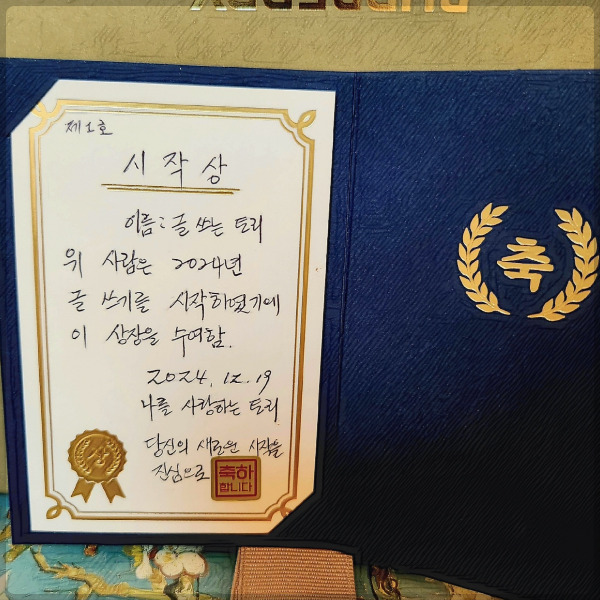 제1호
시작상
이름: 글 쓰는 토리
위 사람은 2024년
글 쓰기를 시작하였기에
이 상장을 수여함.
2024. 12. 19
나를 사랑하는 토리
당신의 새로운 시작을
진심으로 축하
합니다
상
축